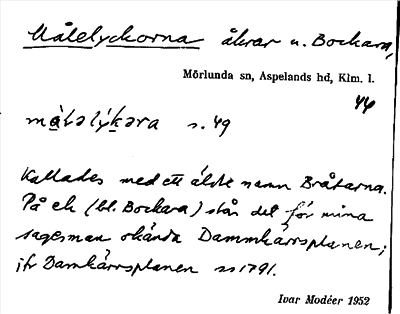 Målelyckorna åkrar u. Bockara,
Mörlunda sn, Aspelands hd, Klm. l.
44
s. 49
Kallades med ett äldre namn Bråtarna.
På ek (bl. Bockara) står det för mina
sagesman okända Dammkärrsplanen;
jfr Damkärrsplanen ss 1791.
Ivar Modéer 1952